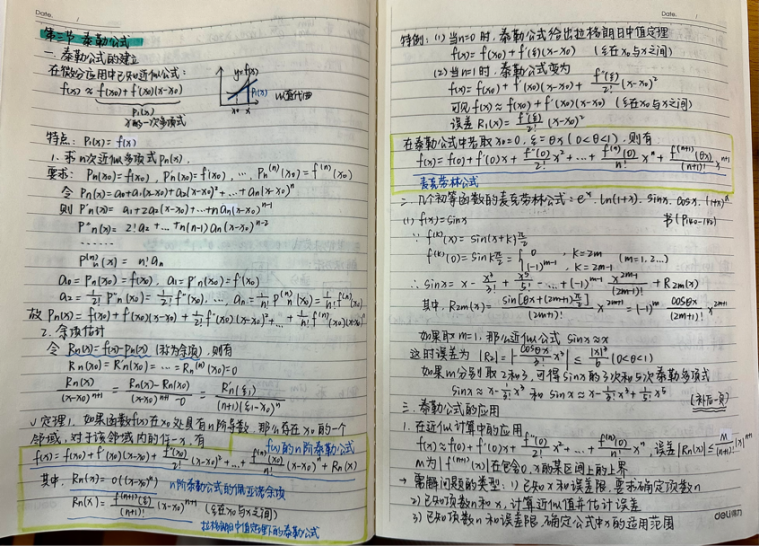 Date.
第三节 泰勒公式
一. 泰勒公式的建立
在微分应用中已知近似公式:
f(x) ≈ f(x₀)+f'(x₀)(x-x₀)
P₁(x)
x的一次多项式
y=f(x)
P₁(x)
x₀ x
以直代曲
特点: P₁(x₀) = f(x₀)
1. 求n次近似多项式 Pn(x).
要求: Pn(x₀)=f(x₀), P'n(x₀)=f'(x₀), …, Pn⁽ⁿ⁾(x₀)=f⁽ⁿ⁾(x₀)
令 Pn(x)= a₀+a₁(x-x₀)+a₂(x-x₀)²+…+an(x-x₀)ⁿ
则 P'n(x)= a₁+2a₂(x-x₀)+…+nan(x-x₀)ⁿ⁻¹
P''n(x)= 2!a₂+…+n(n-1)an(x-x₀)ⁿ⁻²
……
Pn⁽ⁿ⁾(x) = n!an
a₀=Pn(x₀)=f(x₀), a₁=P'n(x₀)=f'(x₀)
a₂=1/2! P''n(x₀)=1/2! f''(x₀), …, an=1/n! Pn⁽ⁿ⁾(x₀)=1/n! f⁽ⁿ⁾(x₀)
故 Pn(x)=f(x₀)+f'(x₀)(x-x₀)+1/2! f''(x₀)(x-x₀)²+…+1/n! f⁽ⁿ⁾(x₀)(x-x₀)ⁿ
2. 余项估计
令 Rn(x)=f(x)-Pn(x) (称为余项), 则有
Rn(x₀)=R'n(x₀)=…=Rn⁽ⁿ⁾(x₀)=0
Rn(x)/(x-x₀)ⁿ⁺¹ = (Rn(x)-Rn(x₀))/((x-x₀)ⁿ⁺¹-0) = R'n(ξ₁)/((n+1)(ξ₁-x₀)ⁿ)
√定理1. 如果函数f(x)在x₀处具有n阶导数, 那么存在x₀的一个
邻域, 对于该邻域内的任一x, 有
f(x)的n阶泰勒公式
f(x)=f(x₀)+f'(x₀)(x-x₀)+f''(x₀)/2! (x-x₀)²+…+f⁽ⁿ⁾(x₀)/n! (x-x₀)ⁿ+Rn(x)
其中, Rn(x)=o((x-x₀)ⁿ) n阶泰勒公式的佩亚诺余项
Rn(x)=f⁽ⁿ⁺¹⁾(ξ)/(n+1)! (x-x₀)ⁿ⁺¹ (ξ在x₀与x之间)
拉格朗日中值定理下的泰勒公式
Date.
特例: (1) 当n=0时, 泰勒公式给出拉格朗日中值定理
f(x)=f(x₀)+f'(ξ)(x-x₀) (ξ在x₀与x之间)
(2) 当n=1时, 泰勒公式变为
f(x)=f(x₀)+f'(x₀)(x-x₀)+f''(ξ)/2! (x-x₀)²
可见 f(x)≈f(x₀)+f'(x₀)(x-x₀) (ξ在x₀与x之间)
误差 R₁(x)=f''(ξ)/2! (x-x₀)²
在泰勒公式中若取x₀=0, ξ=θx (0<θ<1), 则有
f(x)=f(0)+f'(0)x+f''(0)/2! x²+…+f⁽ⁿ⁾(0)/n! xⁿ+f⁽ⁿ⁺¹⁾(θx)/(n+1)! xⁿ⁺¹
麦克劳林公式
二. 几个初等函数的麦克劳林公式: eˣ. ln(1+x). sinx. cosx. (1+x)ᵅ
书(P140-142)
(1) f(x)=sinx
∵ f⁽ᵏ⁾(x)=sin(x+kπ/2)
f⁽ᵏ⁾(0)=sin kπ/2 = { 0 , k=2m
(-1)ᵐ⁻¹, k=2m-1 (m=1,2…)
∴ sinx=x-x³/3!+x⁵/5!-…+(-1)ᵐ⁻¹ x²ᵐ⁻¹/(2m-1)!+R2m(x)
其中, R2m(x)=sin[θx+(2m+1)π/2]/(2m+1)! x²ᵐ⁺¹=(-1)ᵐ cosθx/(2m+1)! x²ᵐ⁺¹
如果取m=1, 那么近似公式 sinx≈x
这时误差为 |R₂|=|-cosθx/3! x³| ≤ |x|³/6 (0<θ<1)
如果m分别取2和3, 可得sinx的3次和5次泰勒多项式
sinx≈x-1/3!x³ 和 sinx≈x-1/3!x³+1/5!x⁵ (补后一页)
三. 泰勒公式的应用
1. 在近似计算中的应用
f(x)≈f(0)+f'(0)x+f''(0)/2! x²+…+f⁽ⁿ⁾(0)/n! xⁿ, 误差|Rn(x)|≤M/(n+1)! |x|ⁿ⁺¹
M为|f⁽ⁿ⁺¹⁾(x)|在包含0, x的某区间上的上界
→ 需解问题的类型: 1) 已知x和误差限, 要求确定项数n
2) 已知项数n和x, 计算近似值并估计误差
3) 已知项数n和误差限, 确定公式中x的适用范围
deli得力